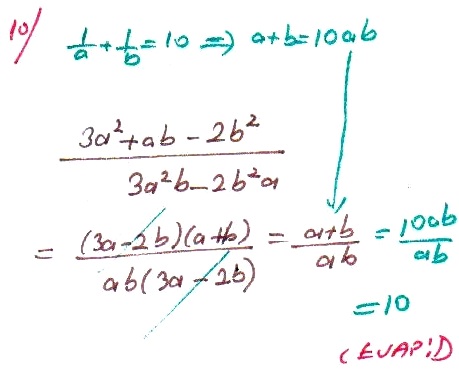 10/ 1/a + 1/b = 10 ⇒ a+b=10ab
3a²+ab-2b²
3a²b-2b²a
= (3a-2b)(a+b) / ab(3a-2b) = a+b / ab = 10ab / ab
=10
(EVAP:D